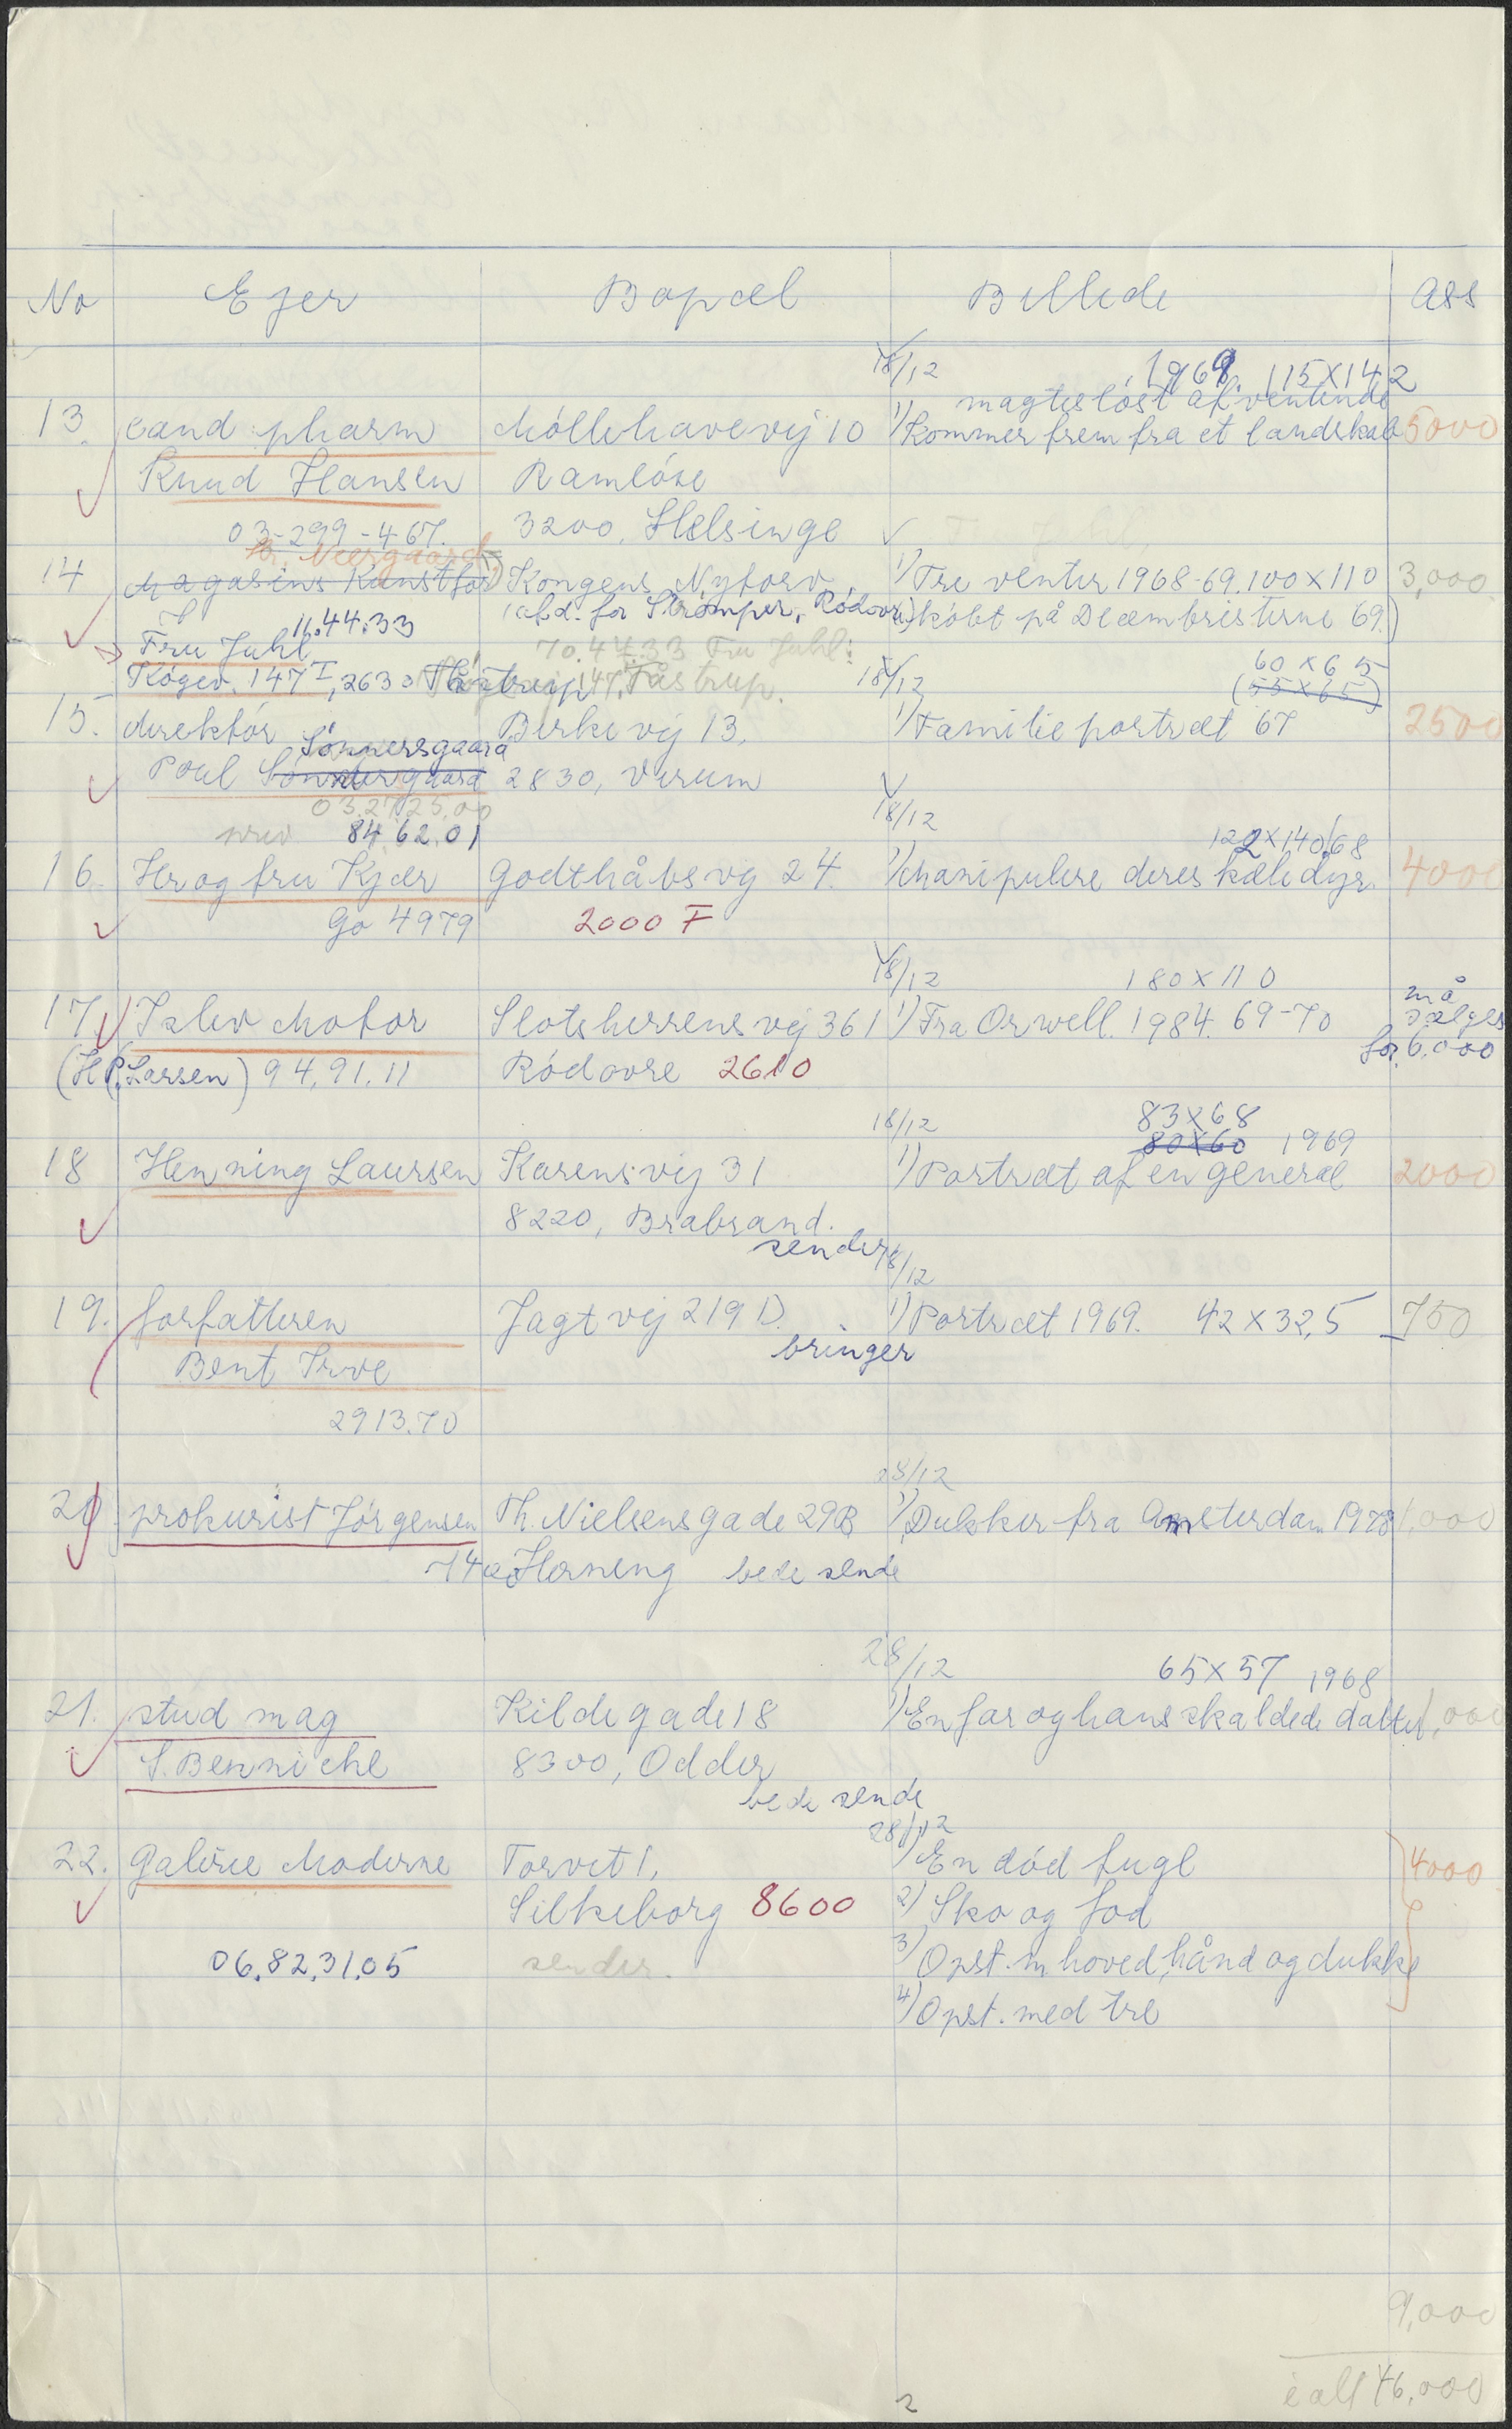 No Ejer Bopæl Billede Ass
18/12 1969. 115x142
magtesløst afventende
13. cand pharm Möllehavevej 10 1) Kommer frem fra et landskab 5000
Knud Hansen Ramlöse
03-299-467. 3200, Helsinge
Hr. Neergaard
14 Magasins Kunstfor Kongens Nytorv 1) Tre venter 1968-69. 100x110 3,000
(afd. for Strömper, Rödovre) köbt på Decembristerne 69.)
11.44.33
Fru Juhl 70.44.33 Fru Juhl:
Kögev. 147 I, 2630 Tåstrup 147, Tåstrup.
18/12 60 x 65
(55x65)
15. direktör Birkevej 13, 1) Familieportræt 67 2500
Sönnersgaard
Poul Söndergaard 2830, Virum
03.27.25.00
priv. 84.62.01
18/12 122x140/68
16. Hr og fru Kjær Godthåbsvej 24. 1) Manipulere deres kæledyr. 4000
Go 4979 2000 F
18/12 180x110
17. Islev Motor Slotsherrensvej 361 1) Fra Orwell. 1984. 69-70 må sælges for 6.000
(H.P. Larsen) 94.91.11 Rödovre 2610
18/12 83x68
80x60 1969
18 Henning Laursen Karensvej 31 1) Portræt af en general 2000
8220, Brabrand.
sender
18/12
19. forfatteren Jagtvej 219 D. 1) Portræt 1969. 42x32,5 750
bringer
Bent Irve
2913.70
28/12
20. prokurist Jörgensen Th. Nielsensgade 29B 1) Dukker fra Amsterdam 1970 1,000
7400 Herning bede sende
28/12 65x57 1968
21. stud mag Kildegade 18 1) En far og hans skaldede datter 1,000
S. Benniche 8300, Odder
bede sende
28/12
22. Galerie Moderne Torvet 1, 1) En död fugl 4000
Silkeborg 8600 2) Sko og fod
06.82.31.05 sender. 3) Opst. m hoved, hånd og dukke
4) Opst. med tre
9,000
ialt 46,000
2